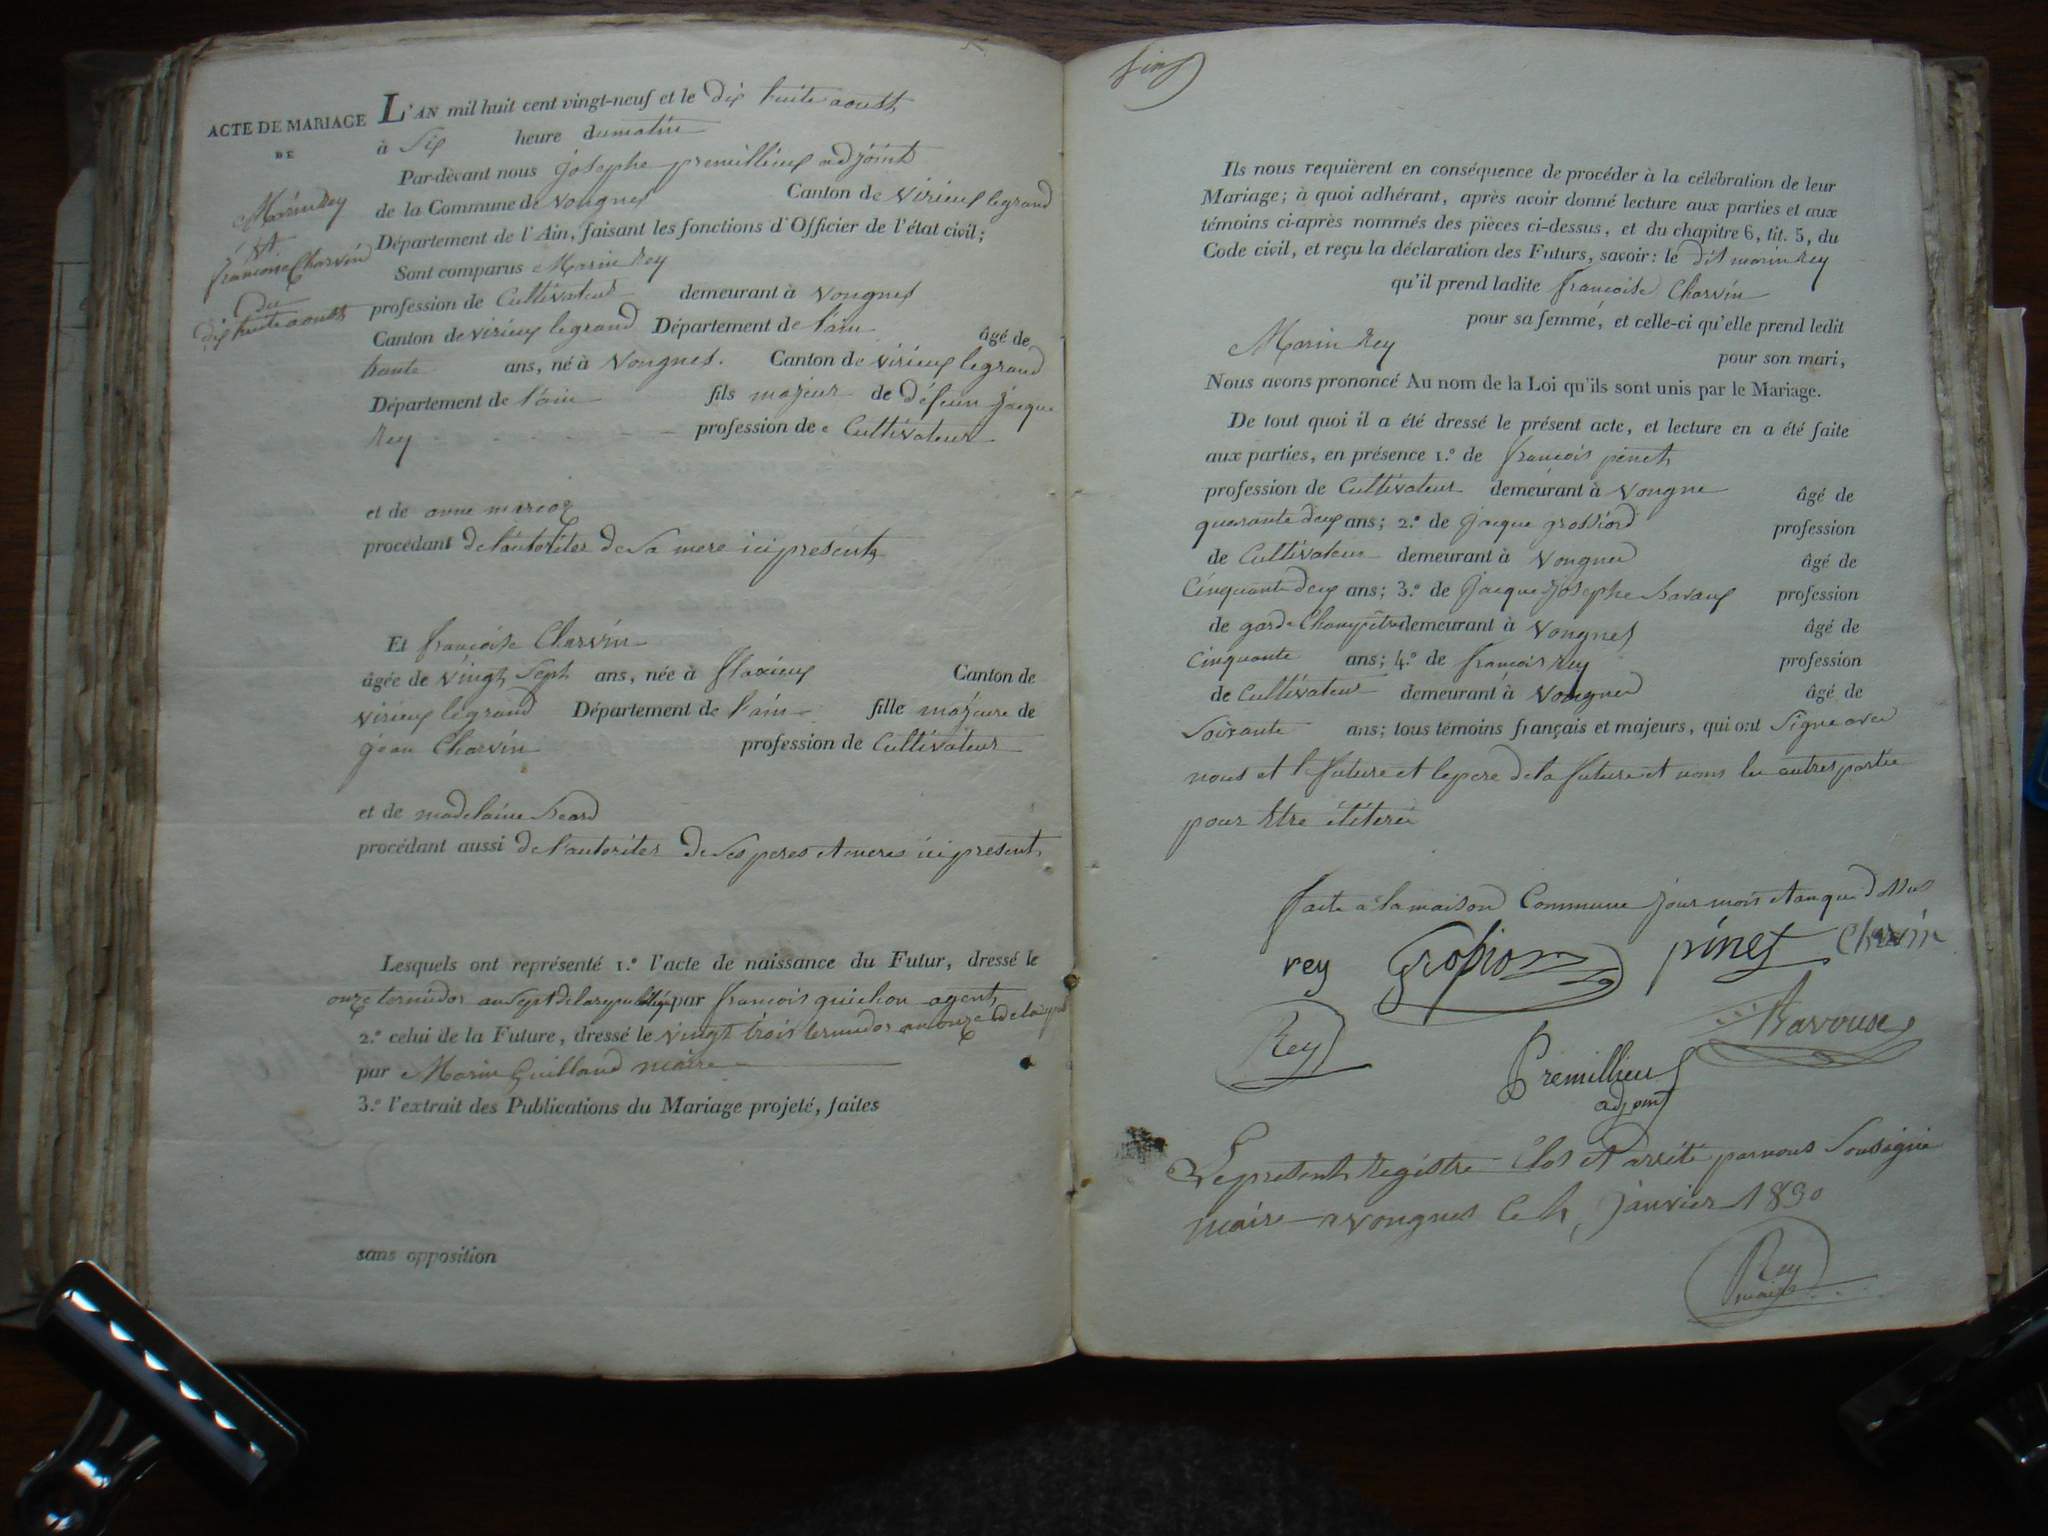 ACTE DE MARIAGE
DE
Marin Rey
et
francoise Charvin
du
dix huite aoust
L'AN mil huit cent vingt-neuf et le dix huite aoust
à Six heure du matin
Par-dèvant nous josephe premillieux adjoint
de la Commune de Vongnes Canton de virieux legrand
Département de l'Ain, faisant les fonctions d'Officier de l'état civil;
Sont comparus Marin Rey
profession de Cultivateur demeurant à Vongnes
Canton de virieux legrand Département de l'ain âgé de
trante ans, né à Vongnes. Canton de virieux legrand
Département de l'ain fils majeur de défeun jacque
Rey profession de Cultivateur
et de anne marcoz
procédant de l'autoriter de Sa mere ici present
Et françoise Charvin
âgée de vingt Sept ans, née à flaxieux Canton de
virieux legrand Département de l'ain fille majeure de
jean Charvin profession de Cultivateur
et de madelaine Beard
procédant aussi de l'autoriter de Ses peres et meres ici present
Lesquels ont représenté 1.º l'acte de naissance du Futur, dressé le
onze termidor an Sept de la republique par francois guichon agent
2.º celui de la Future, dressé le vingt trois termidor an onze de la rep
par Marin Guilland maire
3.º l'extrait des Publications du Mariage projeté, faites
sans opposition
Ils nous requièrent en conséquence de procéder à la célébration de leur
Mariage; à quoi adhérant, après avoir donné lecture aux parties et aux
témoins ci-après nommés des pièces ci-dessus, et du chapitre 6, tit. 5, du
Code civil, et reçu la déclaration des Futurs, savoir: le dit marin Rey
qu'il prend ladite françoise Charvin
pour sa femme, et celle-ci qu'elle prend ledit
Marin Rey pour son mari,
Nous avons prononcé Au nom de la Loi qu'ils sont unis par le Mariage.
De tout quoi il a été dressé le présent acte, et lecture en a été faite
aux parties, en présence 1.º de francois pinet
profession de Cultivateur demeurant à Vongne âgé de
quarante deux ans; 2.º de jacque grossiord profession
de Cultivateur demeurant à Vongnes âgé de
Cinquante deux ans; 3.º de jacque josephe Bavoux profession
de garde Champêtre demeurant à Vongnes âgé de
Cinquante ans; 4.º de francois Rey profession
de Cultivateur demeurant à Vongnes âgé de
Soixante ans; tous témoins français et majeurs, qui ont Signe avec
nous et le future et le pere de la future et nons les autres partie
pour être
faite a la maison Commune jour mois et an que dessus
rey pinet Charvin
Rey Bavoux
Premillieux
adjoint
Le present Registre Clos et arrété par nous Sousigné
maire a Vongnes le 1, janvier 1830
Rey
maire